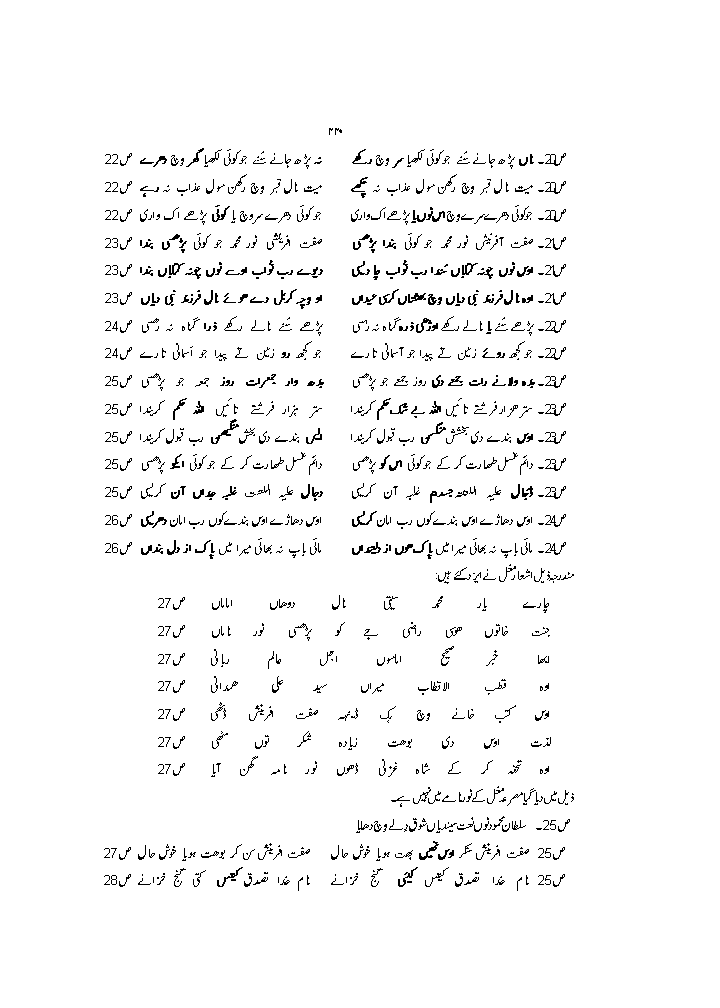 ۲۳۰
ص20۔ ناں پڑھ جانے سُنے جو کوئی لکھیا سر وچ رکھے نہ پڑھ جانے سُنے جو کوئی لکھیا گھر وچ دھرے ص22
ص20۔ میت نال قبر وچ رکھن سول عذاب نہ چکھے میت نال قبر وچ رکھن سول عذاب نہ رہے ص22
ص20۔ جو کوئی دھرے سرے وچ اس نوں یا پڑھے اک واری جو کوئی دھرے سر وچ یا کوئی پڑھے اک واری ص22
ص21۔ صفت آفرینش نور محمد جو کوئی بندا پڑھسی صفت افرینشی نور محمد جو کوئی پڑھسی بندا ص23
ص21۔ اوس نوں چونہ کتاباں سُندا رب ثواب چا دیسی دیوے رب ثواب اوسے نوں چونہ کتاباں بندا ص23
ص21۔ اوہ نال فرزند نبی دیاں وچ بھشتاں کرسی عیداں او وچہ کربل دے ہوئے نال فرزند نبی دیاں ص23
ص22۔ پڑھے سُنے یا نالے رکھے اوڑھی ذرہ گناہ نہ رہسی پڑھے سُنے نالے رکھے ذرا گناہ نہ رہسی ص24
ص22۔ جو کجھ روئے زمین تے پیدا جو آسمانی تارے جو کجھ رو زمین تے پیدا جو اسمانی تارے ص24
ص23۔ بدہ ولانے رات جمعے دی روز جمعے جو پڑھسی بدھ وار جمعرات روز جمعہ جو پڑھسی ص25
ص23۔ ستر ھزار فرشتے تائیں اللہ بے شک حکم کریندا ستر ہزار فرشتے تائیں اللہ حکم کریندا ص25
ص23۔ اوس بندے دی بخشش منگسی رب قبول کریندا اس بندے دی بخش منگیسی رب قبول کریندا ص25
ص23۔ دائم غسل طہارت کر کے جو کوئی اس کو پڑھسی دائم غسل طہارت کر کے جو کوئی ایکو پڑھسی ص25
ص23۔ دجال علیہ اللعنتہ جسدم غلبہ آن کریسی دجال علیہ العنت غلبہ جداں آن کریسی ص25
ص24۔ اوس دھاڑے اوس بندے کوں رب امان کریسی اوس دھاڑے اوس بندے کوں رب امان دھریسی ص26
ص24۔ مائی باپ نہ بھائی میرا میں پاک ھوں از دلبنداں مائی باپ نہ بھائی میرا میں پاک از دل بنداں ص26
مندرجہ ذیل اشعار مغل نے ایزد کئے ہیں:
چارے یار محمد سیتی نال دوھاں اماماں ص27
جنت خاتوں ھوئی راضی جے کو پڑھسی نور ناماں ص27
لبھا خبر صحیح اماموں اجل عالم ربانی ص27
اوہ قطب الاقطاب میراں سید علی ھمدانی ص27
اوس کتب خانے وچ ہک ڈیہہ صفت افرینش ڈٹھی ص27
لذت اوس دی بوھت زیادہ شکر توں مٹھی ص27
اوہ تحفہ کر کے شاہ غزنی ڈھوں نور نامہ گھن آیا ص27
ذیل میں دیا گیا مصرعہ مغل کے نورنامے میں نہیں ہے۔
ص25۔ سلطان محمود نوں نعت سیندیاں شوق دلے وچ دھایا
ص25 صفت افرینش سنکر اوس تھیں بھت ہویا خوش حال صفت افرینش سن کر بوھت ہویا خوش حال ص27
ص25 نام خدا تصدق کیتس کیئی گنج خزانے نام خدا تصدق کیتس کتی گنج خزانے ص28